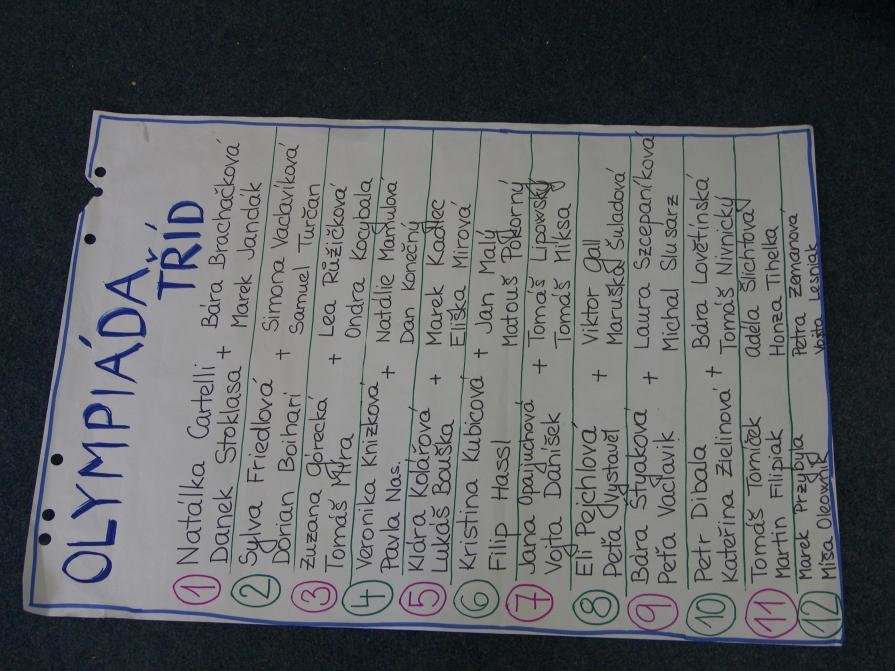 OLYMPIÁDA
TŘÍD
1 Natálka Cartelli + Bára Brachačková
Danek Stoklasa Marek Jandák
2 Sylva Friedlová + Simona Vaclavíková
Dorian Boihari Samuel Turčan
3 Zuzana Górecká + Lea Růžičková
Tomáš Myra Ondra Kocybala
4 Veronika Knizková + Natálie Mamulová
Pavla Nas. Dan Konečný
5 Klára Kolářová + Marek Kadlec
Lukáš Bouška Eliška Mirová
6 Kristina Kubicová + Jan Malý
Filip Hassl Matouš Pokorný
7 Jana Opaujuchová + Tomáš Lipowský
Vojta Daníšek Tomáš Miksa
8 Eli Pejchlová + Viktor Gall
Peťa Vystavěl Maruška Šuladová
9 Bára Štyaková + Laura Szcepaníková
Peťa Vaclavik Michal Slusarz
10 Petr Dibala + Bára Lovětínská
Kateřina Zielinová Tomáš Nivnický
11 Tomáš Tomiček Adéla Šlichtová
Martin Filipiak Honza Tihelka
12 Marek Przybyla Petra Zemanová
Míša Oleownik Vojta Lesniak